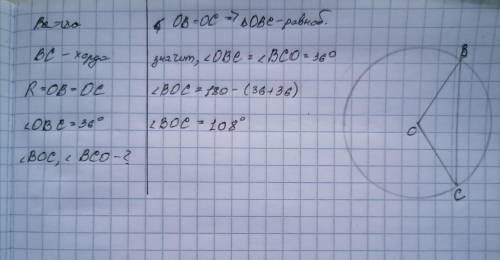 BC - хорда
R = OB = OC
∠OBC = 36°
∠BOC, ∠BCO - ?
OB = OC => △OBC - равноб.
значит, ∠OBC = ∠BCO = 36°
∠BOC = 180 - (36+36)
∠BOC = 108°
B
O
C